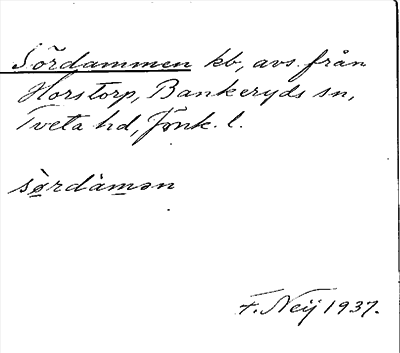 Sördammen kb, avs. från
Horstorp, Bankeryds sn,
Tveta hd, Jönk. l.
sördàmən
F. Neij 1937.